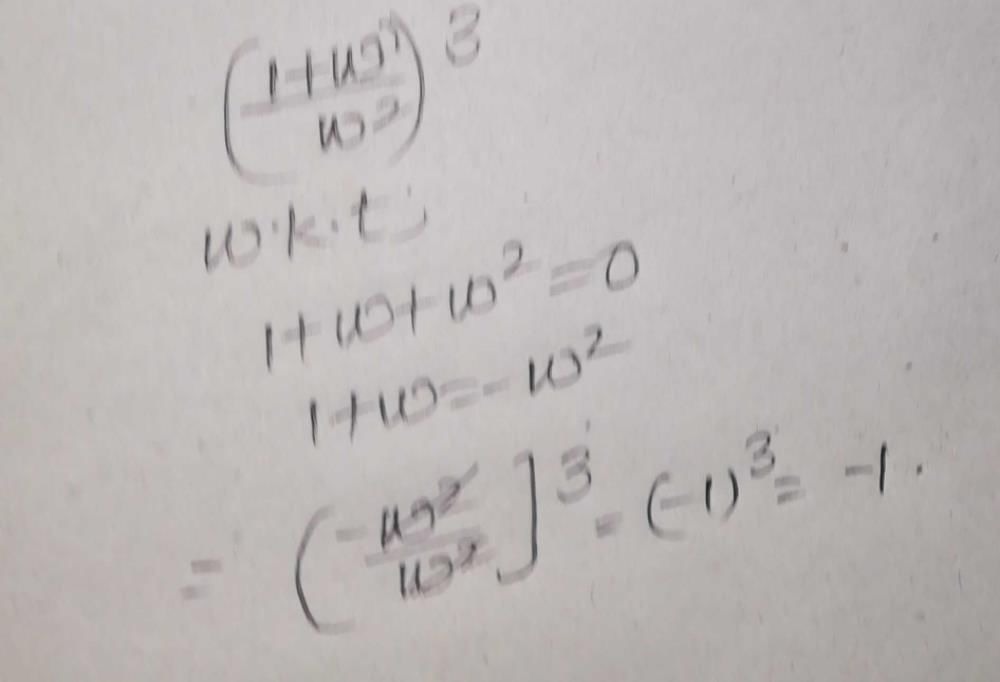 (1+ω / ω²)³
w.k.t;
1+ω+ω²=0
1+ω=-ω²
= (-ω² / ω²]³ = (-1)³ = -1.